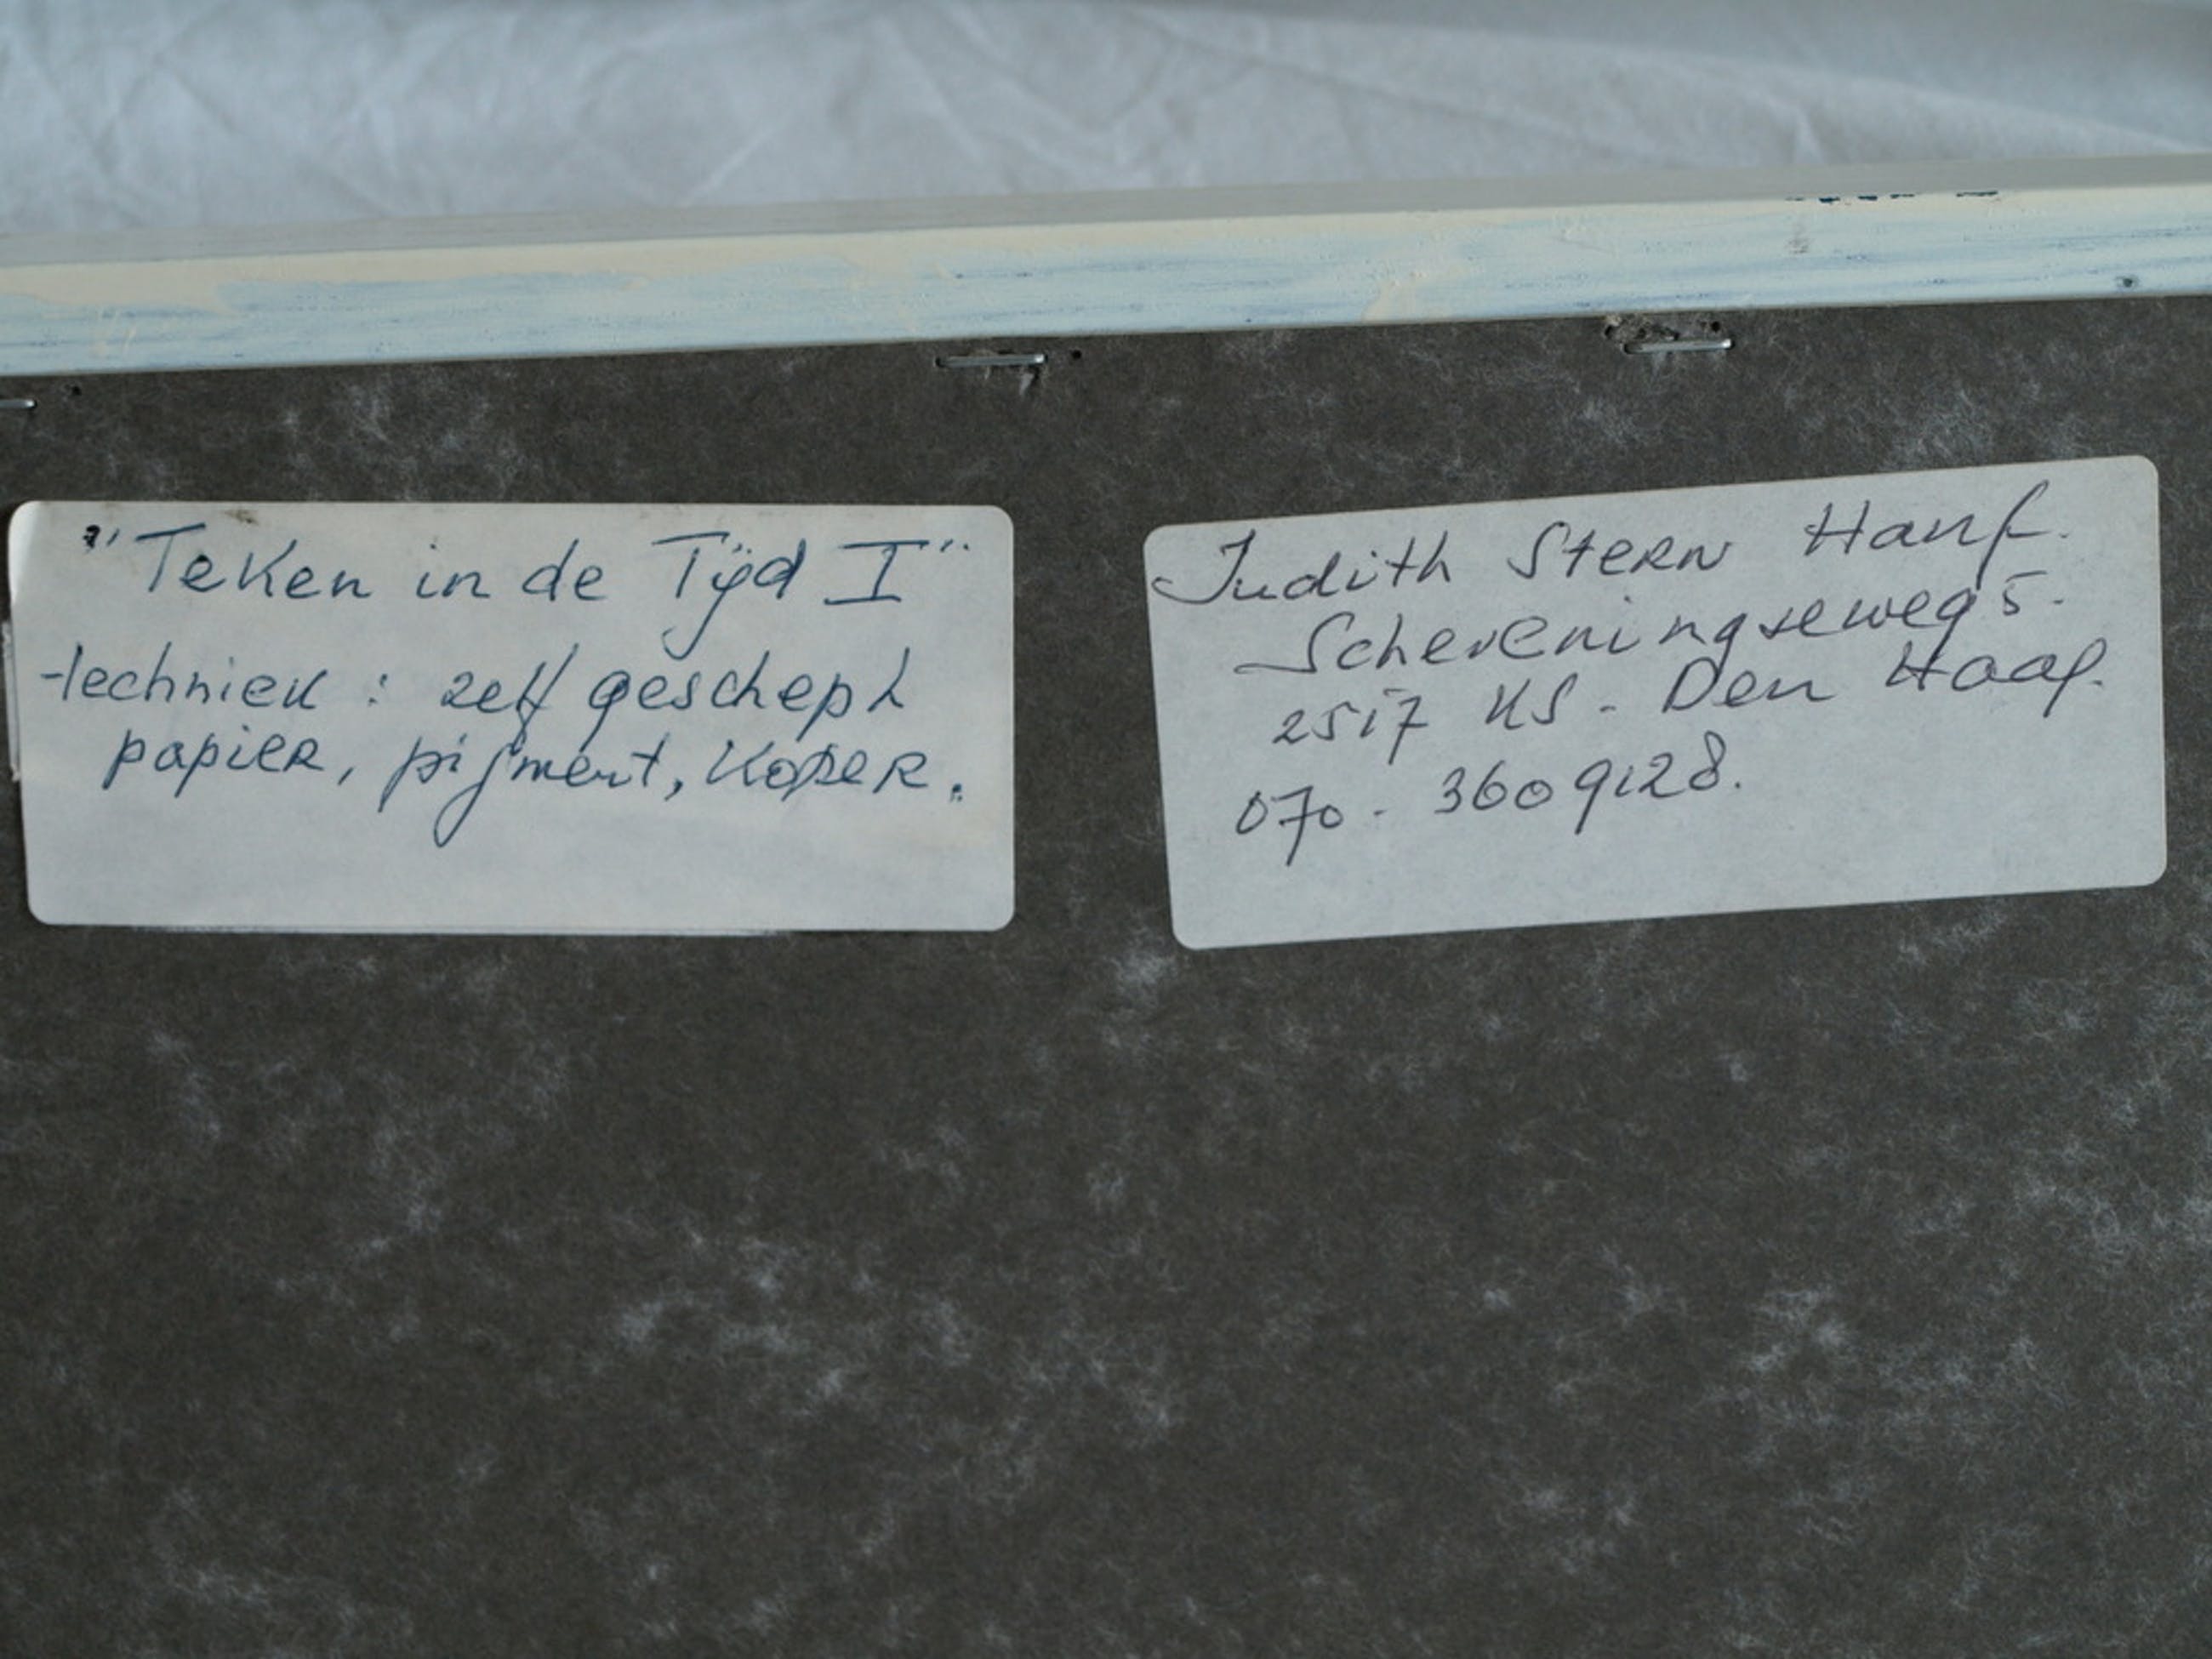 "Teken in de Tijd I"
techniek: zelf geschept
papier, pigment, koper.
Judith Stern Hanf.
Scheveningseweg 5.
2517 KS - Den Haag.
070 - 3609128.